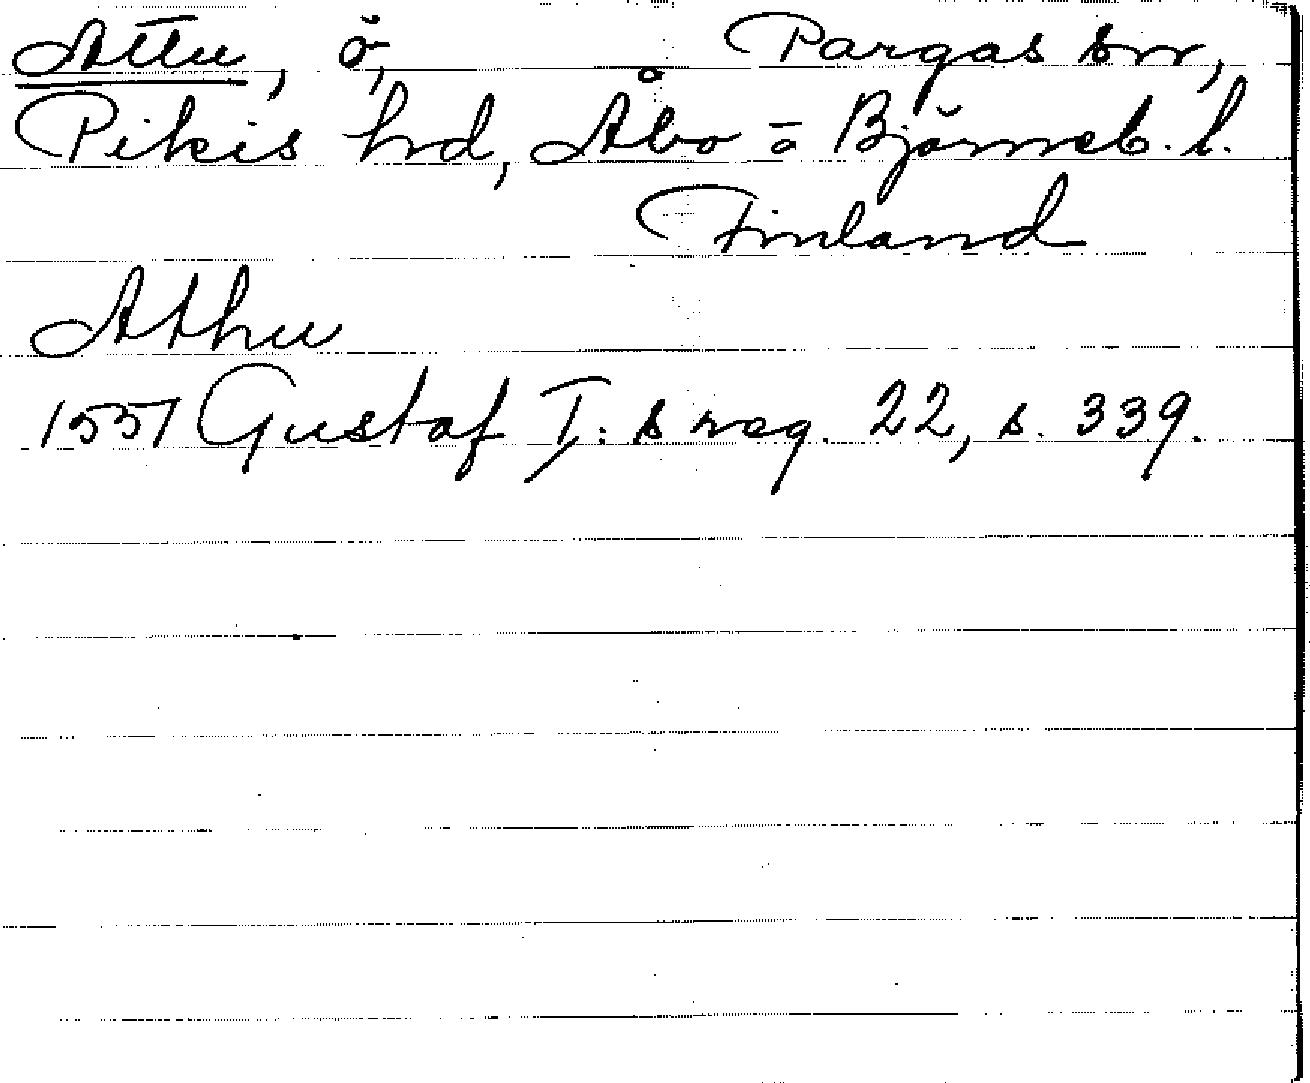 Attu, ö, Pargas sn,
Pikis hd, Åbo o Björneb. l.
Finland
Athu
1557 Gustaf I:s reg. 22, s. 339.